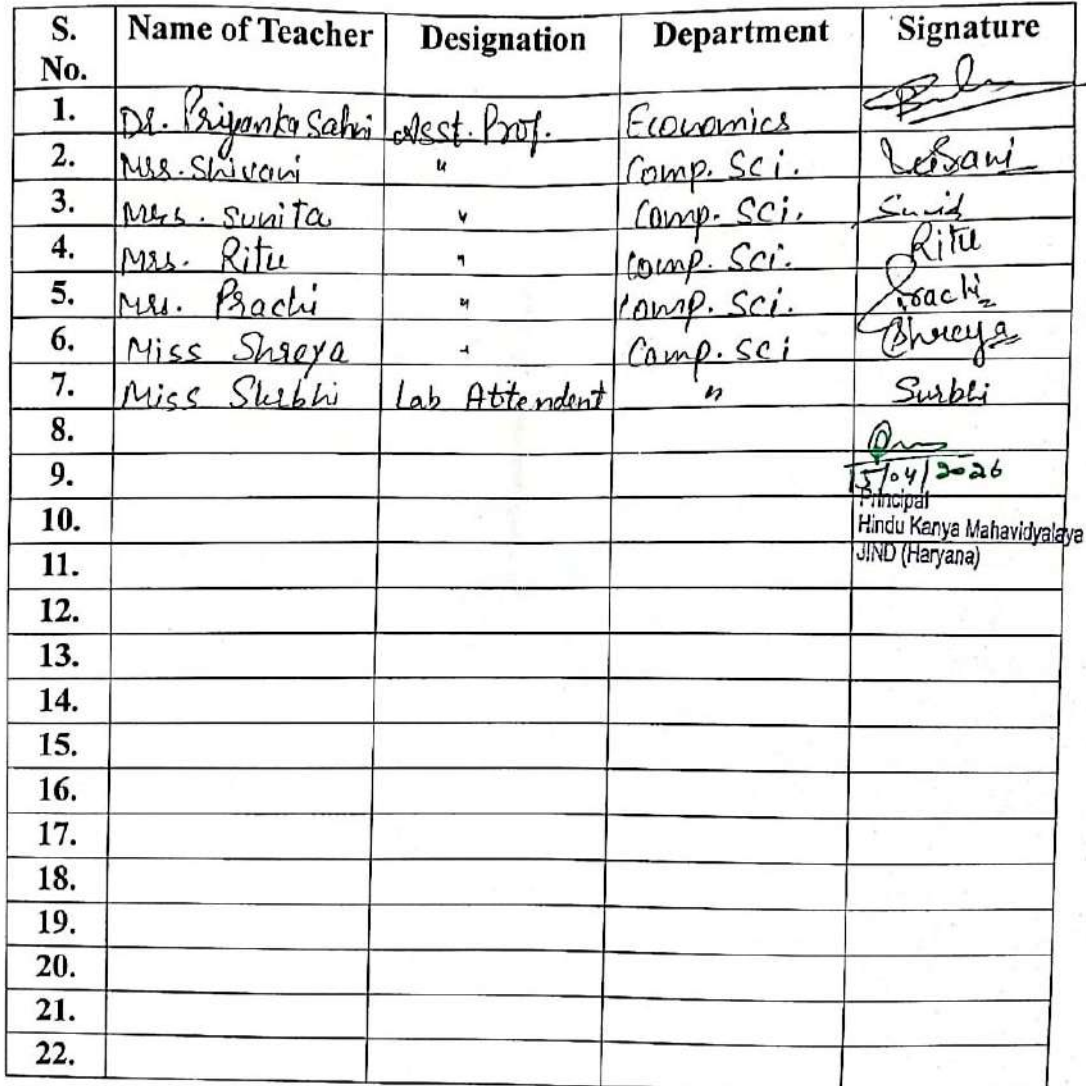 S. No. Name of Teacher Designation Department Signature
1. Dr. Priyanka Sahni Asst. Prof. Economics
2. Mrs. Shivani " Comp. Sci.
3. Mrs. Sunita " Comp. Sci.
4. Mrs. Ritu " Comp. Sci. Ritu
5. Mrs. Prachi " Comp. Sci. Prachi
6. Miss Shreya " Comp. Sci Shreya
7. Miss Surbhi Lab Attendent " Surbhi
8.
9. 15/04/2026
Principal
10. Hindu Kanya Mahavidyalaya
11. JIND (Haryana)
12.
13.
14.
15.
16.
17.
18.
19.
20.
21.
22.